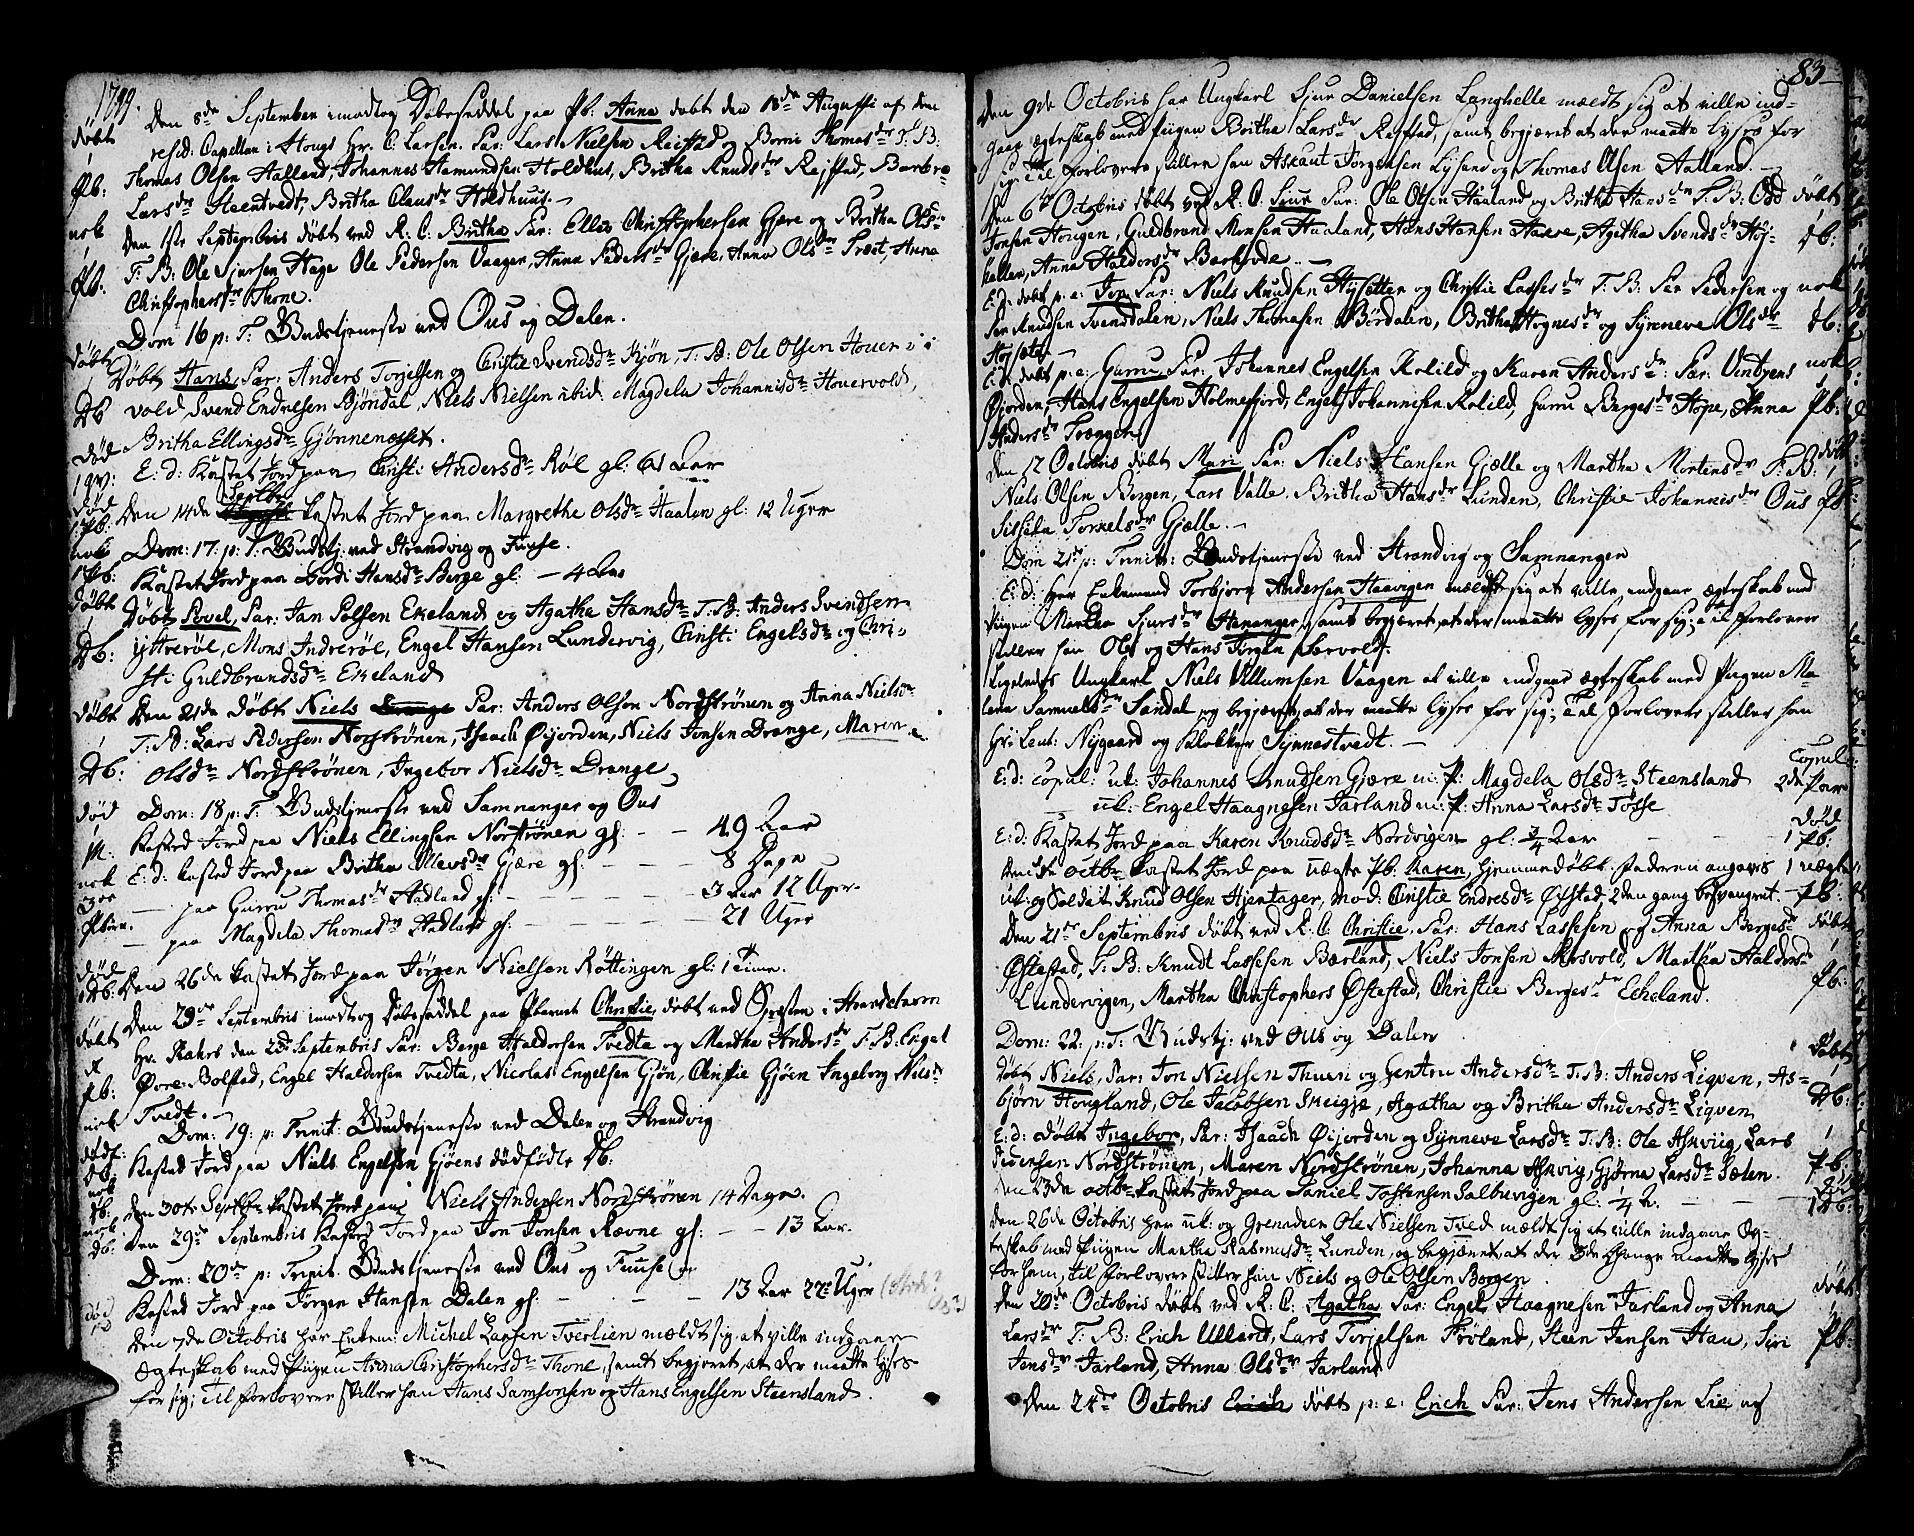 1799.
Den 8de September imodtog Døbeseddel paa Pb: Anna døbt den 18de Augusti af den
døbt
resid: Capellan i Hougs Hr. C. Larsen. Far: Lars Nielsen Reistad og Borni Thomasdr T: B:
1
Pb: Thomas Olsen Halland, Johannes Hamundsen Holdhus, Britha Knudsdr Rejstad, Barbro
Larsdr Steentvedt, Britha Clausdr Holdhuus.
nok Den 1ste Septembris døbt ved R: C: Britha Far: Elles Christophersen Gjere og Britha Olsdr
1
Pb: T: B: Ole Sjursen Hage Ole Pedersen Vaagen, Anna Pedersdr Gjere, Anna Olsdr Træet, Anna
Christophersdr Thone.
Dom 16 p: T: Gudstjeneste ved Ous og Dalen.
døbt Døbt Hans, Far: Anders Torjelsen og Christie Svendsdr Gjøn, T: B: Ole Olsen Houer-
1
Db vold, Svend Endresen Bjøndal, Niels Nielsen ibid: Magdela Johannisdr Houervold,
Britha Ellingsdr Gjønnenesset.
død E: d: Kastet Jord paa Christi Andersdr Røl gl: 61 Aar
1 qv:
død Septbr
1 Pb: Den 14de kastet Jord paa Margrethe Olsdr Haalen gl: 12 Uger
nok Dom: 17. p: T. Gudstj: ved Strandvig og Fuuse.
1 Pb: Kastet Jord paa Gordi Hansdr Berge gl: – 4 Aar
døbt Døbt Povel, Far: Jan Polsen Ekeland og Agatha Hansdr T: B: Anders Svendsen
1
Db: Ytrerøl, Mons Indrerøl, Engel Hansen Lundervig, Christi Engelsdr og Chri-
sti Guldbrandsdr Ekeland
døbt Den 21de døbt Niels Far: Anders Olsen Nordstrønen og Anna Nielsdr
1 T: B: Lars Pedersen Norstrønen, Isaach Øijorden, Niels Jonsen Drange, Maren
Db: Olsdr Nordstrønen, Ingebor Nielsdr Drange
død Dom: 18 p: T: Gudstjeneste ved Samnanger og Ous
1
M: Kasted Jord paa Niels Ellingsen Norstrønen gl: – – 49 Aar
nok E: d: kasted Jord paa Britha Ellevsdr Gjere gl: – – – 8 Dage
3de – paa Gurru Thomasdr Hadland gl: – – – – 3 Aar 12 Uger
Pbørn. – paa Magdela Thomasdr Hadland gl: – – – 21 Uger
død
1 Db: Den 26de kastet Jord paa Jørgen Nielsen Røttingen gl: 1 time.
Den 29de Septembris imodtog Døbeseddel paa Pbarnet Christie, døbt ved Præsten i Strandebarm
døbt Hr. Rahrs den 22de Septembris Far: Berge Haldorsen Tvedte og Martha Andersdr T: B: Engel
1
Pb: Øvre-Bolstad, Engel Haldorsen Tvedte, Nicolas Engelsen Gjøn, Christie Gjøen Ingeborg Nielsdr
nok Tvedt. –
Dom: 19: p: Trinit: Gudstjeneste ved Dalen og Strandvig
dødf: Kasted Jord paa Niels Engelsen Gjøens dødfødte Db:
Db:
nok den 30te Septbr kastet Jord paa Niels Andersen Nordstrønen 14 Dage.
Db:
nok Den 29de Septembris Kasted Jord paa Jon Jonsen Ravne gl: – – 13 Aar.
Db:
Dom: 20de p: Trinit. Gudstjeneste ved Ous og Fuuse
død Kasted Jord paa Jørgen Hansen Dalen gl: – – – 13 Aar 22 Uger
Den 7de Octobris har Enkem: Michel Larsen Tverlien mældt sig, at ville indgaae
Ægteskab med Pigen Anna Christophersdr Thone, samt begjæret, at der maatte lyses
for sig; til Forlovere stiller han Hans Samsonsen og Hans Engelsen Steensland.
83
Den 9de Octobris har Ungkarl Sjur Danielsen Langhelle mældt sig at ville ind-
gaae ægteskab med Pigen Britha Larsdr Rejstad, samt begjæret at der maatte lyses for
sig: til forlovere stiller han Askaut Jørgensen Lysand og Thomas Olsen Halland. –
Den 6te Octobris døbt ved R: C: Siur Far: Ole Olsen Haaland og Britha Hansdr T: B: Odd døbt
1
Jonsen Hougen, Guldbrand Monsen Haaland, Hans Hansen Haere, Agatha Svendsdr Høj- Db:
hallen, Anna Haldorsdr Barhovde. –
E: d: døbt p: e: Jon Far: Niels Knudsen Hysætter og Christie Lassesdr T: B: Per Pedersen og nok
1
Per Knudsen Svensdalen, Niels Thomasen Børdalen, Britha Hognesdr og Synneve Olsdr Db:
Hysæter –
E: d: døbt p: e: Gurru Far: Johannes Engelsen Kolild og Karen Andersdr: Far: Ventzens nok
1
Øjorden, Hans Engelsen Holmefjord, Engel Johannesen Kolild, Gurru Bergesdr Hope, Anna Pb:
Andersdr Træggen
Den 12 Octobris døbt Mari Far: Niels Hansen Gjelle og Martha Mortensdr T: B: døbt
1
Niels Olsen Borgen, Lars Valle. Britha Hansdr Lunden, Christie Johannisdr Ous Pb:
Sissela Torkelsdr Gjelle. –
Dom 21de p: Trinit: Gudstjeneste ved Strandvig og Samnangen
E: d: har Enkemand Torbjørn Andersen Haavigen mældt sig at ville indgaae ægteskab med
Pigen Martha Sjursdr Hananger, samt begjæret, at der maatte lyses for sig; til forlovere
stiller han Ole og Hans Jørgen Sørvold.
Ligeledes Ungkarl Niels Villumsen Vaagen at ville indgaae ægteskab med Pigen Ma-
lena Samuelsdr Sandal og begjæret, at der maatte lyses for sig; til forlovere stiller han
Hr: Leut: Nygaard og Klokker Synnestvedt. –
Copul:
E: d: copul: uk: Johannes Knudsen Gjere m: P: Magdela Olsdr Steensland 2de Par
– uk: Engel Haagnesen Jarland m: P: Anna Larsdr Tøsse
død
E: d: Kastet Jord paa Karen Knudsdr Nordvigen gl: 3/4 Aar – – 1 Pb:
den 5te octbr kastet Jord paa uægte Pb: Maren, hjemmedøbt. faderen angaves 1 uægte
uk: og Soldat Knud Olsen Hjertager, mod: Christie Endresdr Østestad, 2den gang besvangret. Pb:
Den 21de Septembris døbt ved R. C: Christie, Far: Hans Lassesen og Anna Bergesdr døbt
1
Østestad, T: B: Knudt Lassesen Bærland, Niels Jonsen Mosvold, Martha Haldorsdr Pb:
Lundervigen, Martha Christophers Østestad, Christie Bergesdr Eckeland.
Dom: 22: p: T: Gudstj: ved Ous og Dalen
døbt
døbt Niels, Far: Jon Nielsen Thuen og Gentru Andersdr T: B: Anders Liqven, As- 1
bjørn Hougland, Ole Jacobsen Skeigje, Agatha og Britha Andersdr Liqven Db:
E: d: døbt Ingebor, Far: Isaach Øijorden og Synneve Larsdr T: B: Ole Ahnvig, Lars 1
Pedersen Nordstrønen, Maren Nordstrønen, Johanna Ahnvig, Gjørna Larsdr Sælen. Pb:
den 23de octbr kastet Jord paa Daniel Tostensen Salbuvigen gl: 1/4 A. – – død 1 Db:
den 26de Octobris har uk: og Grenadeer Ole Nielsen Tved mældt sig at ville indgaae Æg-
teskab med Pigen Martha Rasmusdr Lunden, og begjæret, at der 3de Gange maatte lyses
for ham, til forlovere stiller han Niels og Ole Olsen Borgen.
døbt
Den 20de Octobris døbt ved R: C: Agatha Far: Engel Haagnesen Jarland og Anna 1
Larsdr T: B: Erich Ulland, Lars Torjelsen Frøland, Steen Jensen Hau, Siri Pb:
Jensdr Jarland, Anna Olsdr Jarland
Den 24de Octobris Erich døbt p: e: Erich Far: Jens Andersen Lie og